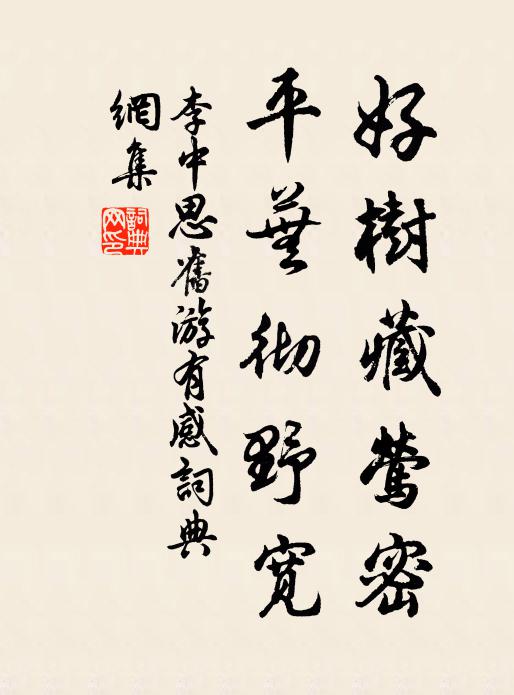 好樹藏鶯密
平蕪彻野寛
李中思舊游有感詞典
網集
詞典网印